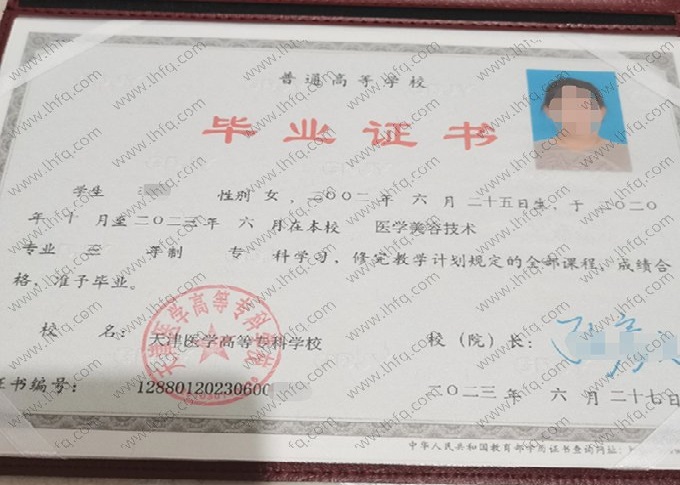 普通高等学校
毕业证书
学生 性别 女，二〇〇二年 六 月 二十五日生，于 二〇二〇
年 十 月至二〇二三年 六 月在本校 医学美容技术
专业 三 年制 专 科学习，修完教学计划规定的全部课程，成绩合
格，准予毕业。
校 名：天津医学高等专科学校 校（院）长：
证书编号： 12880120230600 二〇二三年 六 月二十七日
天津医学高等专科学校
中华人民共和国教育部学历证书查询网址：
www.lhfq.com